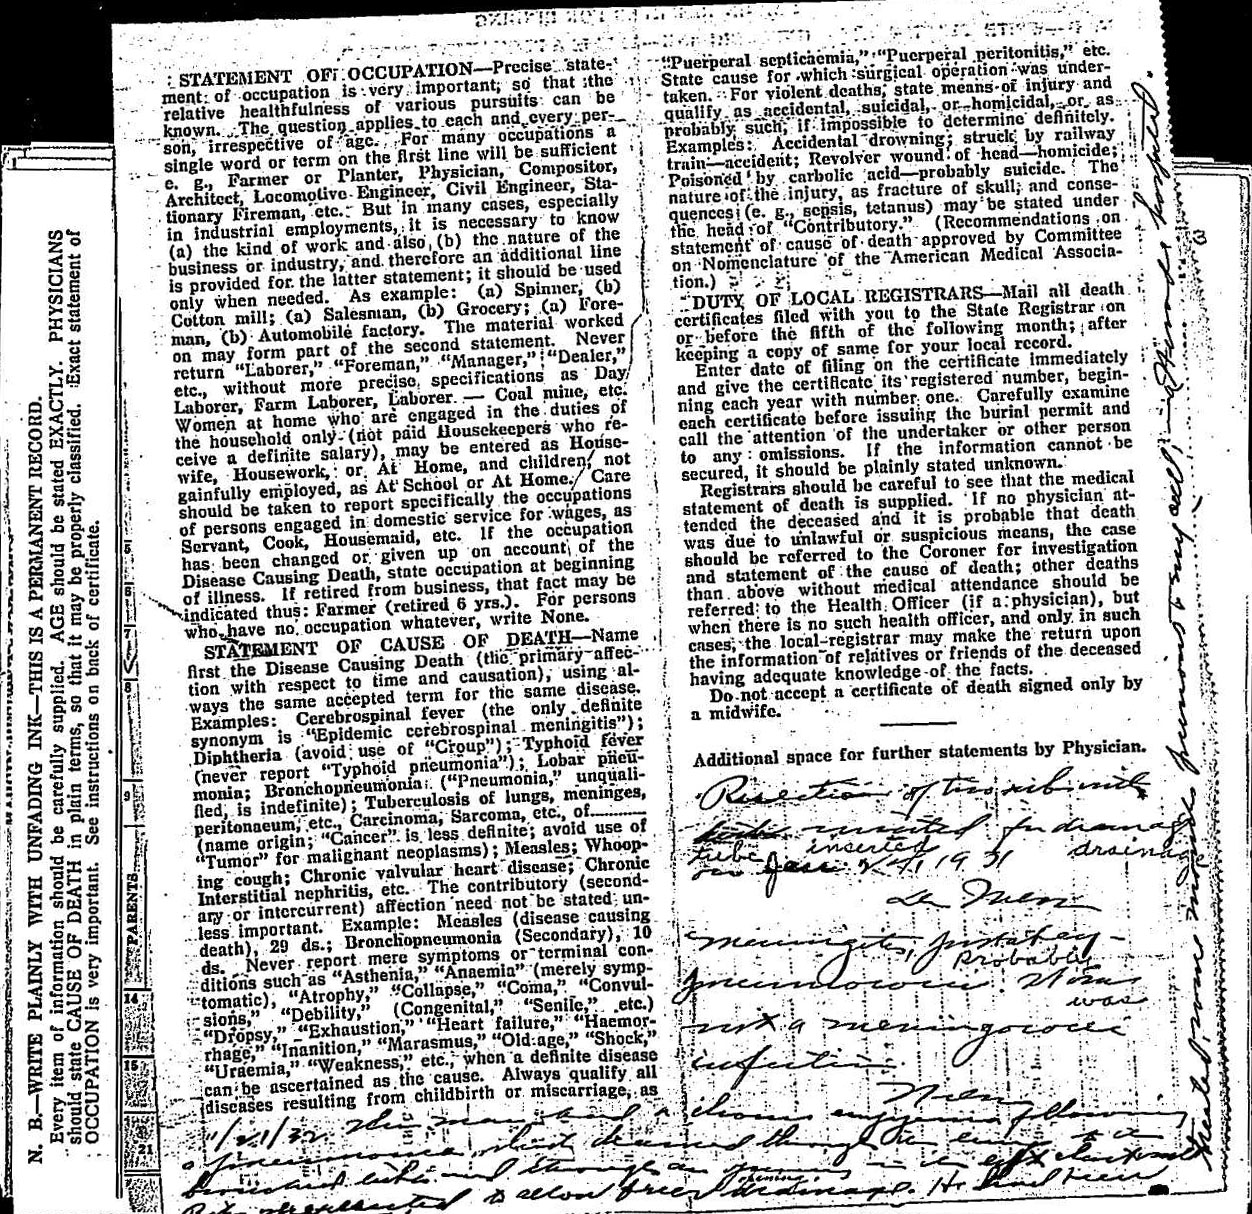 N. B.—WRITE PLAINLY WITH UNFADING INK—THIS IS A PERMANENT RECORD.
Every item of information should be carefully supplied. AGE should be stated EXACTLY. PHYSICIANS
should state CAUSE OF DEATH in plain terms, so that it may be properly classified. Exact statement of
OCCUPATION is very important. See instructions on back of certificate.
PARENTS
5
6
7
8
9
14
15
21
STATEMENT OF OCCUPATION—Precise state-
ment of occupation is very important, so that the
relative healthfulness of various pursuits can be
known. The question applies to each and every per-
son, irrespective of age. For many occupations a
single word or term on the first line will be sufficient
e. g., Farmer or Planter, Physician, Compositor,
Architect, Locomotive Engineer, Civil Engineer, Sta-
tionary Fireman, etc. But in many cases, especially
in industrial employments, it is necessary to know
(a) the kind of work and also (b) the nature of the
business or industry, and therefore an additional line
is provided for the latter statement; it should be used
only when needed. As example: (a) Spinner, (b)
Cotton mill; (a) Salesman, (b) Grocery; (a) Fore-
man, (b) Automobile factory. The material worked
on may form part of the second statement. Never
return "Laborer," "Foreman," "Manager," "Dealer,"
etc., without more precise specifications as Day
Laborer, Farm Laborer, Laborer — Coal mine, etc.
Women at home who are engaged in the duties of
the household only (not paid Housekeepers who re-
ceive a definite salary), may be entered as House-
wife, Housework, or At Home, and children, not
gainfully employed, as At School or At Home. Care
should be taken to report specifically the occupations
of persons engaged in domestic service for wages, as
Servant, Cook, Housemaid, etc. If the occupation
has been changed or given up on account of the
Disease Causing Death, state occupation at beginning
of illness. If retired from business, that fact may be
indicated thus: Farmer (retired 6 yrs.). For persons
who have no occupation whatever, write None.
STATEMENT OF CAUSE OF DEATH—Name
first the Disease Causing Death (the primary affec-
tion with respect to time and causation), using al-
ways the same accepted term for the same disease.
Examples: Cerebrospinal fever (the only definite
synonym is "Epidemic cerebrospinal meningitis");
Diphtheria (avoid use of "Croup"); Typhoid fever
(never report "Typhoid pneumonia"); Lobar pneu-
monia; Bronchopneumonia ("Pneumonia," unquali-
fied, is indefinite); Tuberculosis of lungs, meninges,
peritonaeum, etc., Carcinoma, Sarcoma, etc., of..........
(name origin; "Cancer" is less definite; avoid use of
"Tumor" for malignant neoplasms); Measles; Whoop-
ing cough; Chronic valvular heart disease; Chronic
Interstitial nephritis, etc. The contributory (second-
ary or intercurrent) affection need not be stated un-
less important. Example: Measles (disease causing
death), 29 ds.; Bronchopneumonia (Secondary), 10
ds. Never report mere symptoms or terminal con-
ditions such as "Asthenia," "Anaemia" (merely symp-
tomatic), "Atrophy," "Collapse," "Coma," "Convul-
sions," "Debility," (Congenital," "Senile," etc.)
"Dropsy," "Exhaustion," "Heart failure," "Haemor-
rhage," "Inanition," "Marasmus," "Old age," "Shock,"
"Uraemia," "Weakness," etc., when a definite disease
can be ascertained as the cause. Always qualify all
diseases resulting from childbirth or miscarriage, as
"Puerperal septicaemia," "Puerperal peritonitis," etc.
State cause for which surgical operation was under-
taken. For violent deaths, state means of injury and
qualify as accidental, suicidal, or homicidal, or as
probably such, if impossible to determine definitely.
Examples: Accidental drowning; struck by railway
train—accident; Revolver wound of head—homicide;
Poisoned by carbolic acid—probably suicide. The
nature of the injury, as fracture of skull, and conse-
quences (e. g., sepsis, tetanus) may be stated under
the head of "Contributory." (Recommendations on
statement of cause of death approved by Committee
on Nomenclature of the American Medical Associa-
tion.)
DUTY OF LOCAL REGISTRARS—Mail all death
certificates filed with you to the State Registrar on
or before the fifth of the following month; after
keeping a copy of same for your local record.
Enter date of filing on the certificate immediately
and give the certificate its registered number, begin-
ning each year with number one. Carefully examine
each certificate before issuing the burial permit and
call the attention of the undertaker or other person
to any omissions. If the information cannot be
secured, it should be plainly stated unknown.
Registrars should be careful to see that the medical
statement of death is supplied. If no physician at-
tended the deceased and it is probable that death
was due to unlawful or suspicious means, the case
should be referred to the Coroner for investigation
and statement of the cause of death; other deaths
than above without medical attendance should be
referred to the Health Officer (if a physician), but
when there is no such health officer, and only in such
cases, the local registrar may make the return upon
the information of relatives or friends of the deceased
having adequate knowledge of the facts.
Do not accept a certificate of death signed only by
a midwife.
Additional space for further statements by Physician.
Resection of two ribs with
inserted for drainage
tube inserted drainage
on 1931
meningitis, probably
Probably
pneumococcic.
was
not a meningococci
infection.
1/21/32. This man had a chronic empyema following
a pneumonia, which drained through the lung to a
bronchial tube and through an opening in the left chest wall
opening
to allow free drainage. He had been
treated, some months previous to my call, in hospital.